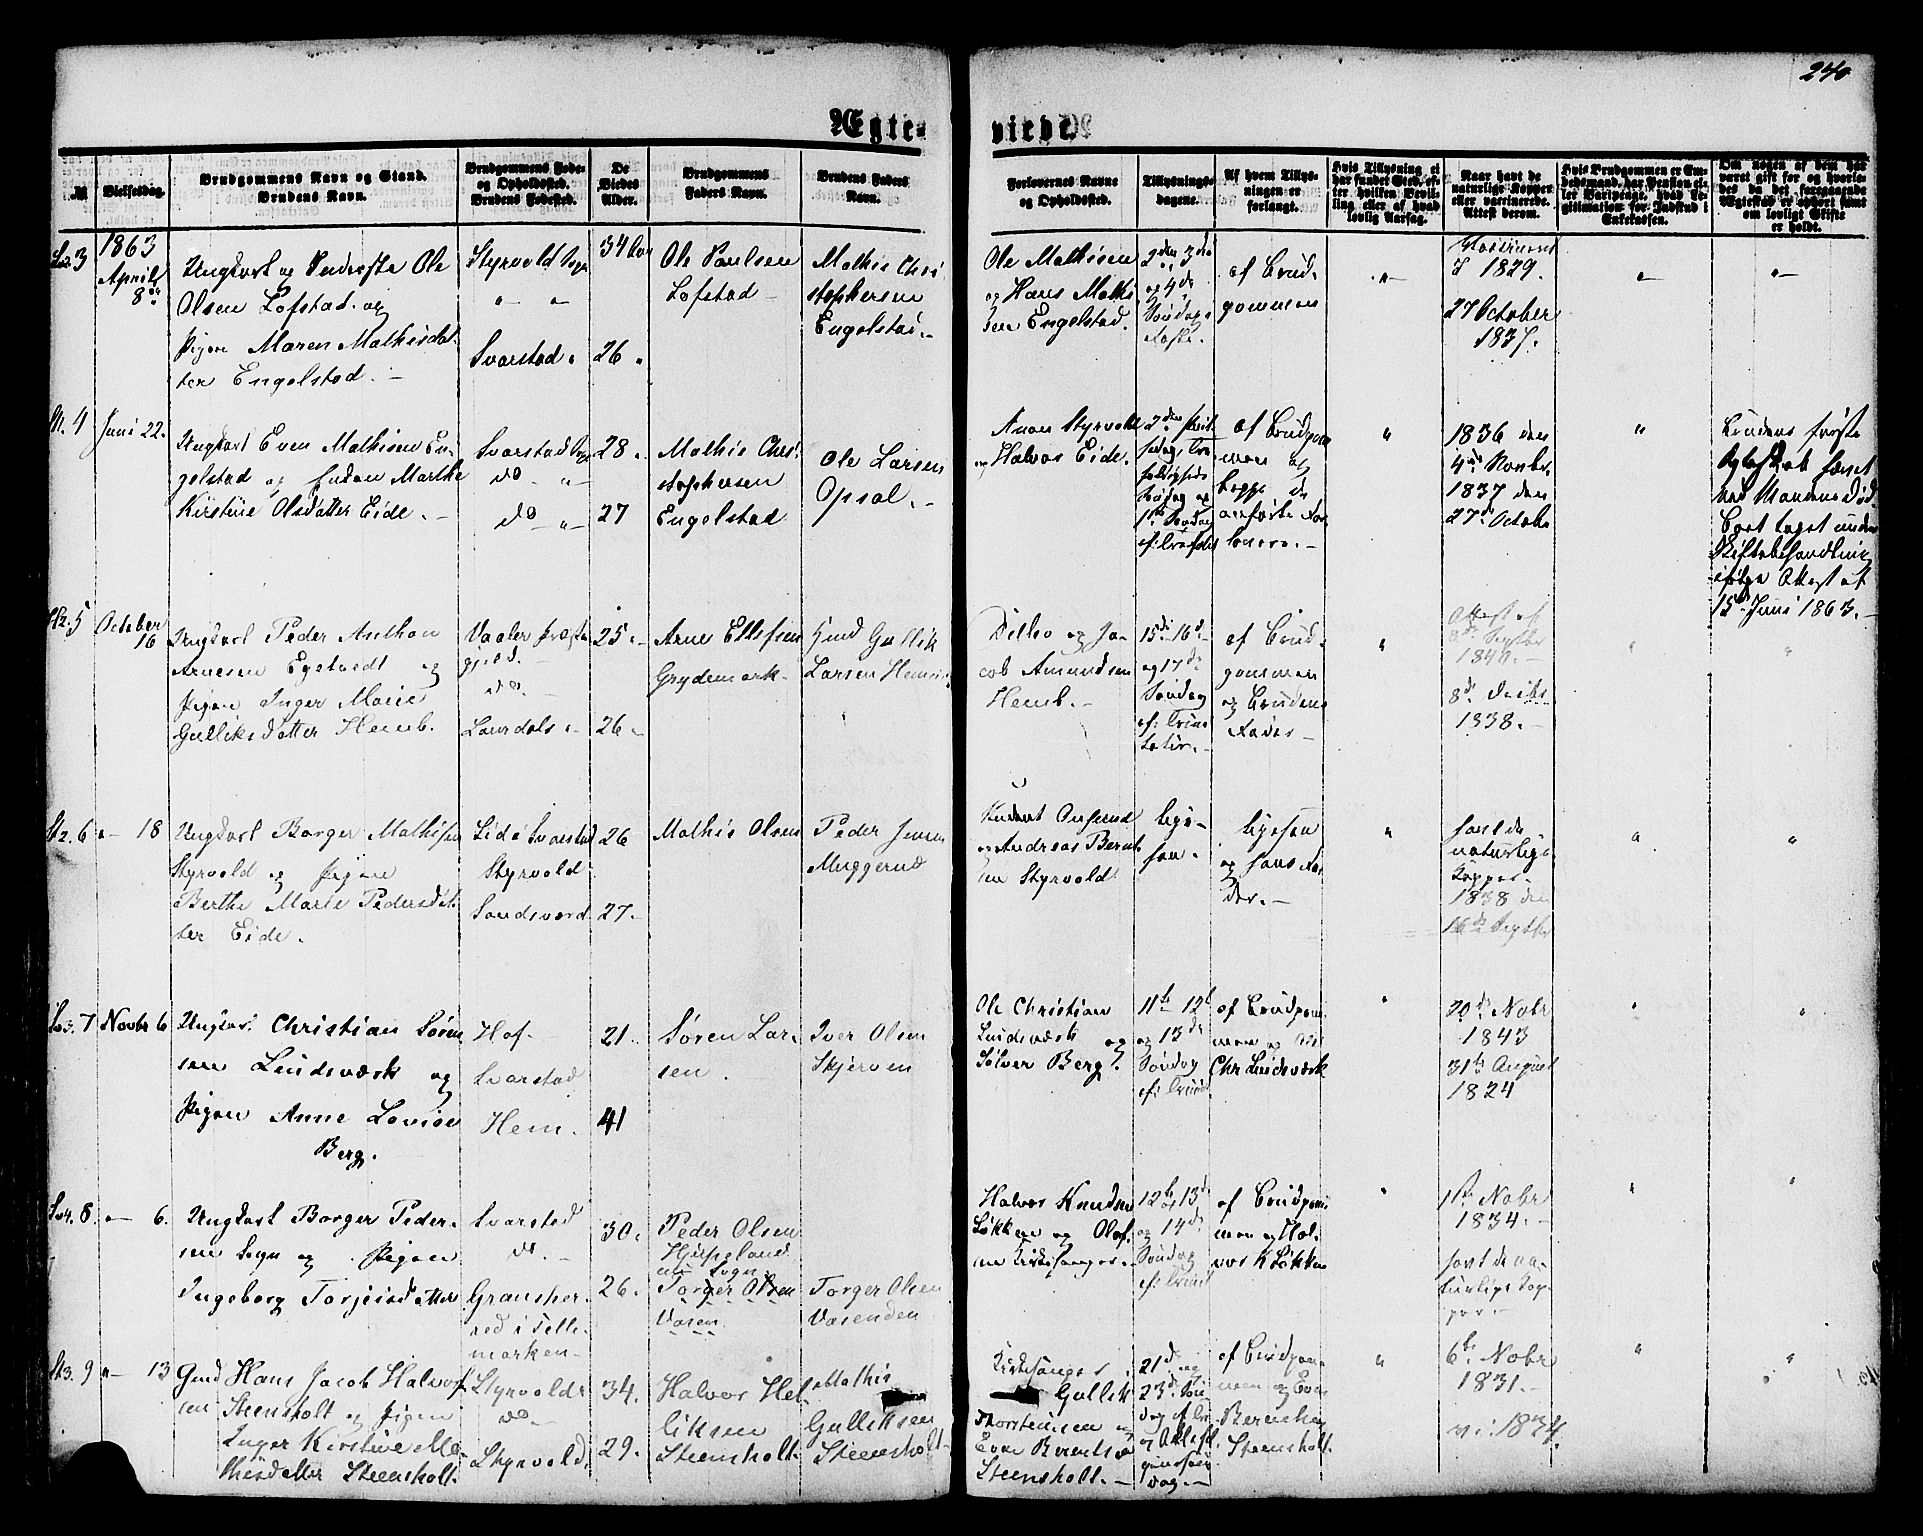 240
Ægte-
viede.
№
Vielsesdag.
Brudgommens Navn og Stand.
Brudens Navn.
Brudgommens Føde-
og Opholdssted.
Brudens Fødested.
De
Viedes
Alder.
Brudgommens
Faders Navn.
Brudens Faders
Navn.
Forlovernes Navne
og Opholdssted.
Tillysnings-
dagene.
Af hvem Tillys-
ningen er
forlangt.
Hvis Tillysning ei
har fundet Sted, ef-
ter hvilken Bevil-
ling eller af hvad
lovlig Aarsag.
Naar havt de
naturlige Kopper
eller vaccinerede.
Attest derom.
Hvis Brudgommen er Em-
bedsmand, har Pension el-
ler Vartpenge, hvad Le-
gitimation for Indskud i
Enkekassen.
Om nogen af dem har
været gift før og hvorle-
des da det foregaaende
Ægteskab er ophørt samt
om lovligt Skifte
er holdt.
3
1863
April
8de
Ungkarl og Inderste Ole
Olsen Løfstad og
Pigen Maren Mathisdat-
ter Engelstad. -
Styrvold Sogn
" "
Svarstad "
34 Aar
26 "
Ole Paulsen
Løfstad -
Mathis Chri
stophersen
Engelstad. -
Ole Mathisen
og Hans Mathi
sen Engelstad.
2den 3die
og 4de
Søndag i
Faste.
af Brud-
gommen
"
1829.
27 October
1837.
"
"
4
Juni 22.
Ungkarl Even Mathisen En-
gelstad og Enken Marthe
Kirstine Olsdatter Eide. -
Svarstad Sogn
do - "
do - "
28 -
27
Mathis Chri
stophersen
Engelstad
Ole Larsen
Opsal. -
Anon Styrvold
og Halvor Eide. -
af Brudgom
men og
begge de
anførte For
lovere. -
"
1836 den
4de Novbr
1837 den
27de October
"
Brudens første
Ægteskab hævet
ved Mandens Død
Boet taget under
Skiftebehandling
ifølge Attest af
15de Juni 1863. -
5
October
16
Ungkarl Peder Anthon
Arnesen Egetvedt og
Pigen Inger Marie
Gulliksdatter Hemb.
Vaaler Præste
gjeld. -
do. -
Laurdals -
25 -
26 -
Arne Ellefsen
Grydemork -
Knud Gullik
Larsen Hem
Ditlev og Ja-
cob Amundsen
Hemb. -
15de 16de
og 17de
Søndag
ef: Trini
tatis. -
af Brud-
gommen
og Brudens
Fader -
"
Attest af
8de Septbr
1840. -
8de Decbr
1838. -
"
"
6
" 18
Ungkarl Borger Mathisen
Styrvold og Pigen
Berthe Marie Pedersdat-
ter Eide.
Eide i Svarstad
Styrvold
Sandsværd
26
27 -
Mathis Olsen
Peder Jensen
Muggerud
og Andreas Bernt
sen Styrvold
og hans Fa-
der. -
"
havt de
naturlige
Kopper
1838 den
16de Septbr
"
"
7
Novbr 6
Ungkarl Christian Søren
sen Lindsværk og
Pigen Anne Lovise
Berg.
Hof -
Svarstad
Hem.
21 -
41
Søren Lar-
sen.
Iver Olsen
Skjerven
Ole Christian
Lindsværk og
Sølver Berg.
11te 12te
og 13de
Søndag
ef: Trinit
af Brudgom
men og
Chr Lindsværk
"
20de Nobr
1843
31te August
1824
"
"
8.
" 6.
Ungkarl Borger Peder-
sen Sogn og Pigen
Ingeborg Torjersdatter
Svarstad
do. -
Gransher-
red i Telle-
marken -
30.
26.
Peder Olsen
Hjupeland
nu Sogn.
Torger Olsen
Vasen.
Torger Olsen
Vasenden
Halvor Knudsen
Løkken og Olaf-
sen Kirkesanger. -
12te 13de
og 14de
Søndag
ef: Trinit
af Brudgom
men og Hal-
vor K Løkken
"
1ste Nobr
1834. -
havt de na-
turlige Kop-
per. -
"
"
9
" 13
Gmd Hans Jacob Halvor
sen Steensholt og Pigen
Inger Kirstine Ma-
thisdatter Steensholt
Styrvolds
do. -
Styrvold
34.
29.
Halvor Hel
liksen
Steensholt.
Mathis
Gulliksen
Steensholt -
Kirkesanger
Gullik
Thorstensen og
Even Berentsen
Steensholt. -
af Brudgom-
men og Even
Berentsen
Steensholt.
"
6te Nobr
1831. -
"
"